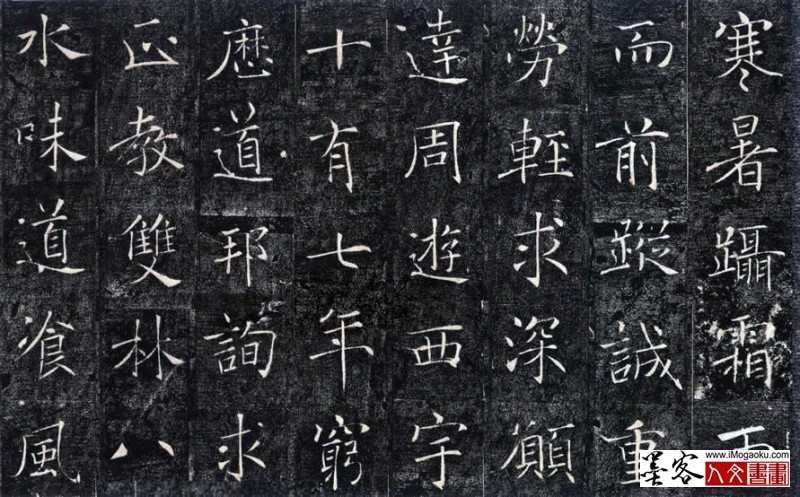 寒暑躡霜
而前蹤誠重
勞輕求深願
達周遊西宇
十有七年窮
歷道邦詢求
正教雙林八
水味道飡風
墨客 www.iMogaoku.com
人文書畫